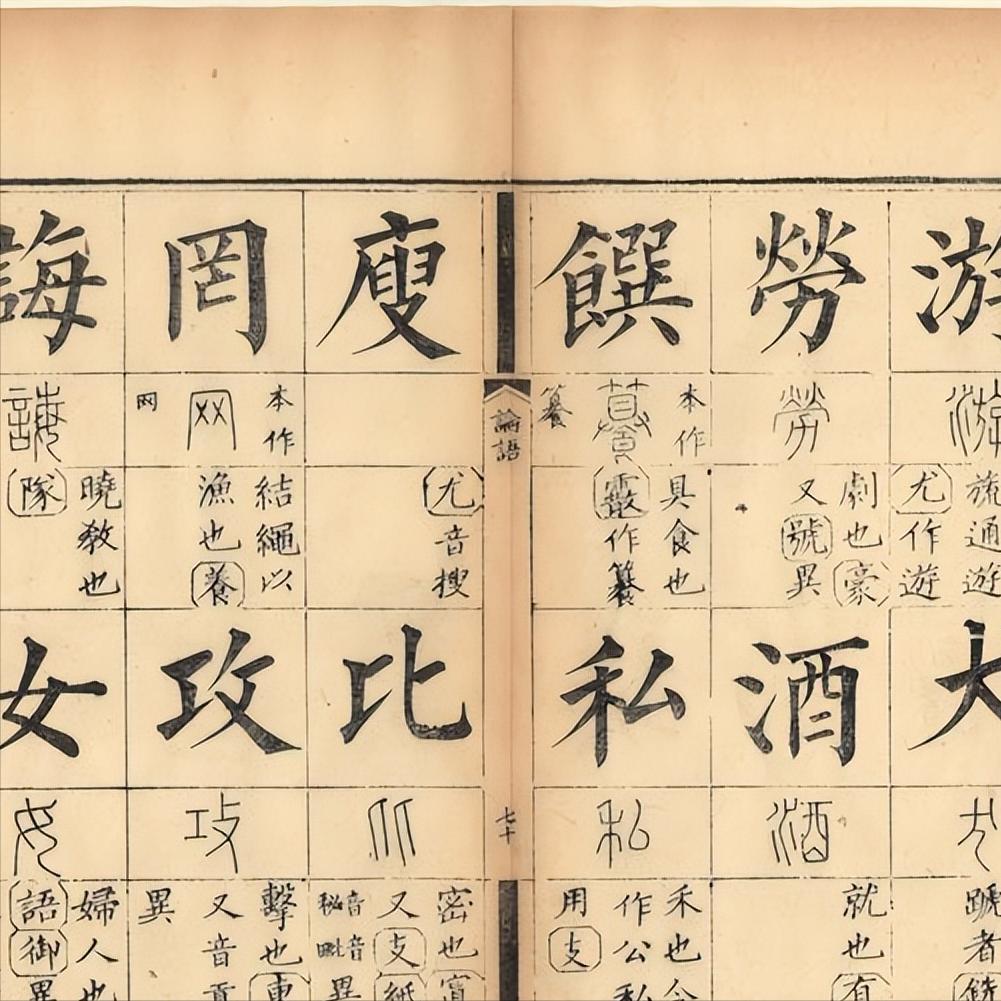 游
游
旒通遊
尤作遊
勞
勞
劇也豪
又號異
酒
酒
就也有
饌
本作
籑
具食也
霰作籑
私
私
禾也今
作公私
用支
論語
七十
廋
尤音搜
比
比
密也寘
又支紙
音秘
音毗
異
罔
本作
网
网
結繩以
漁也養
攻
攻
擊也東
又音貢
異
誨
誨
曉教也
隊
女
女
婦人也
語御異